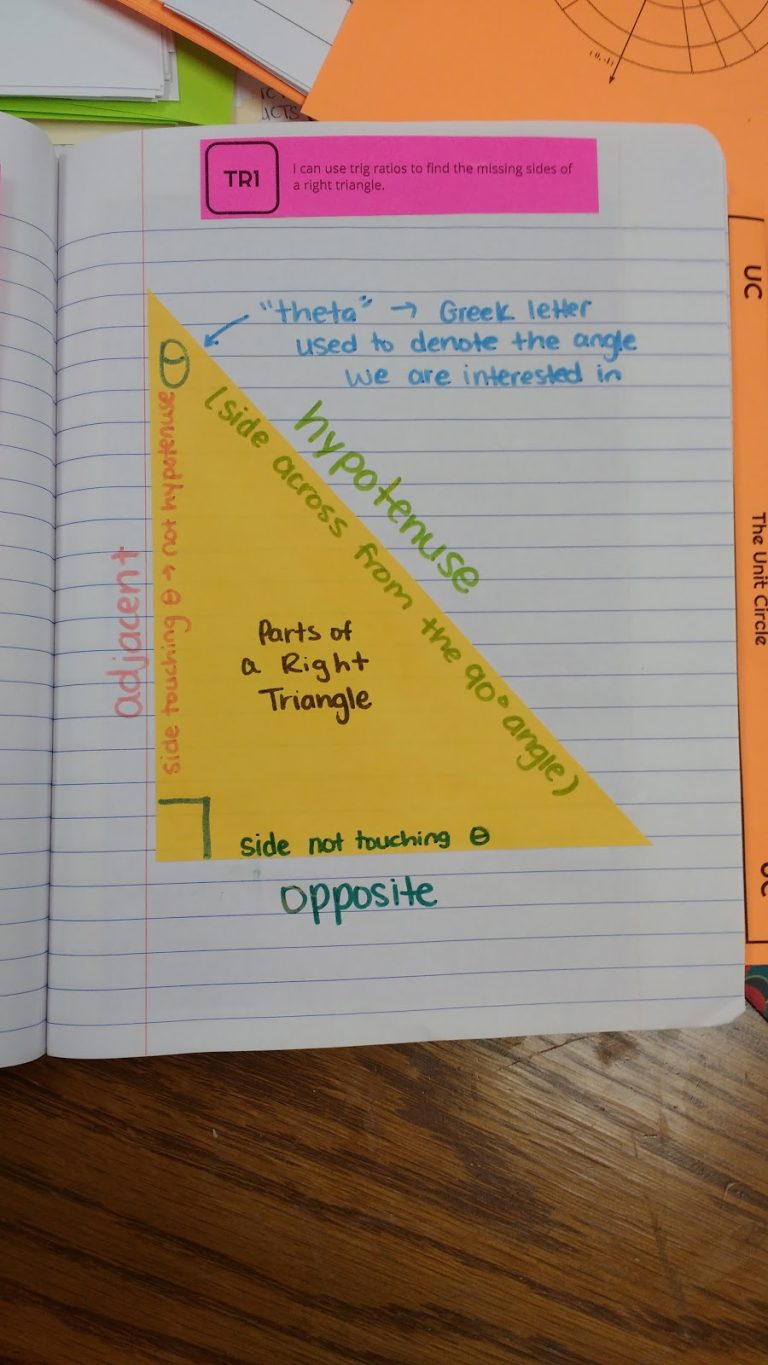 TR1
I can use trig ratios to find the missing sides of
a right triangle.
"theta" → Greek letter
used to denote the angle
we are interested in
θ
hypotenuse
(side across from the 90° angle)
adjacent
side touching θ → not hypotenuse
Parts of
a Right
Triangle
side not touching θ
opposite
UC
The Unit Circle
UC